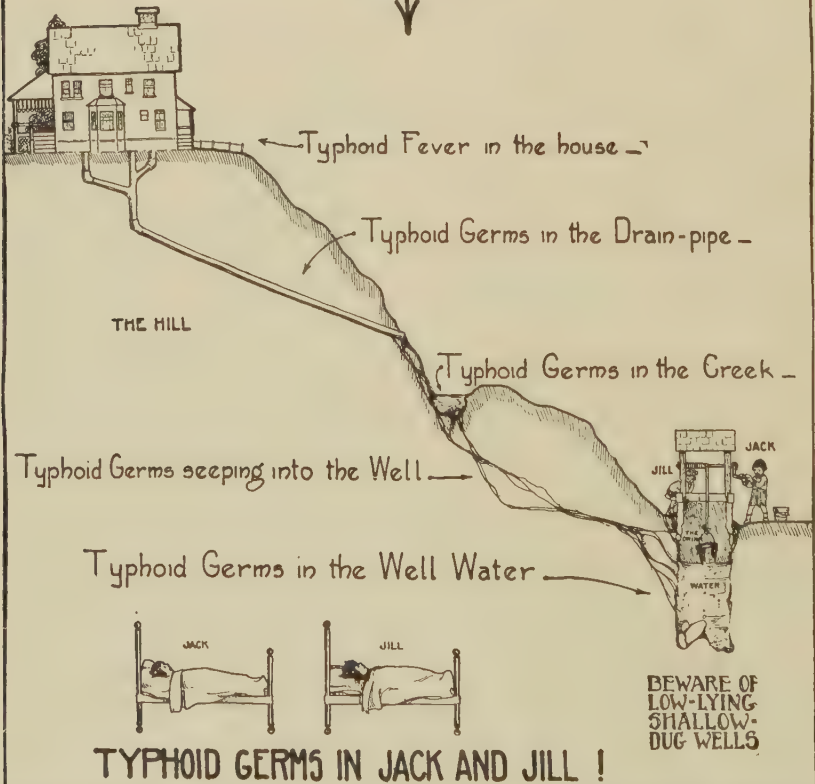 Typhoid Fever in the house —
Typhoid Germs in the Drain-pipe —
THE HILL
Typhoid Germs in the Creek —
JACK
JILL
Typhoid Germs seeping into the Well
THE
WATER
Typhoid Germs in the Well Water
JACK
JILL
BEWARE OF
LOW-LYING
SHALLOW-
DUG WELLS
TYPHOID GERMS IN JACK AND JILL !